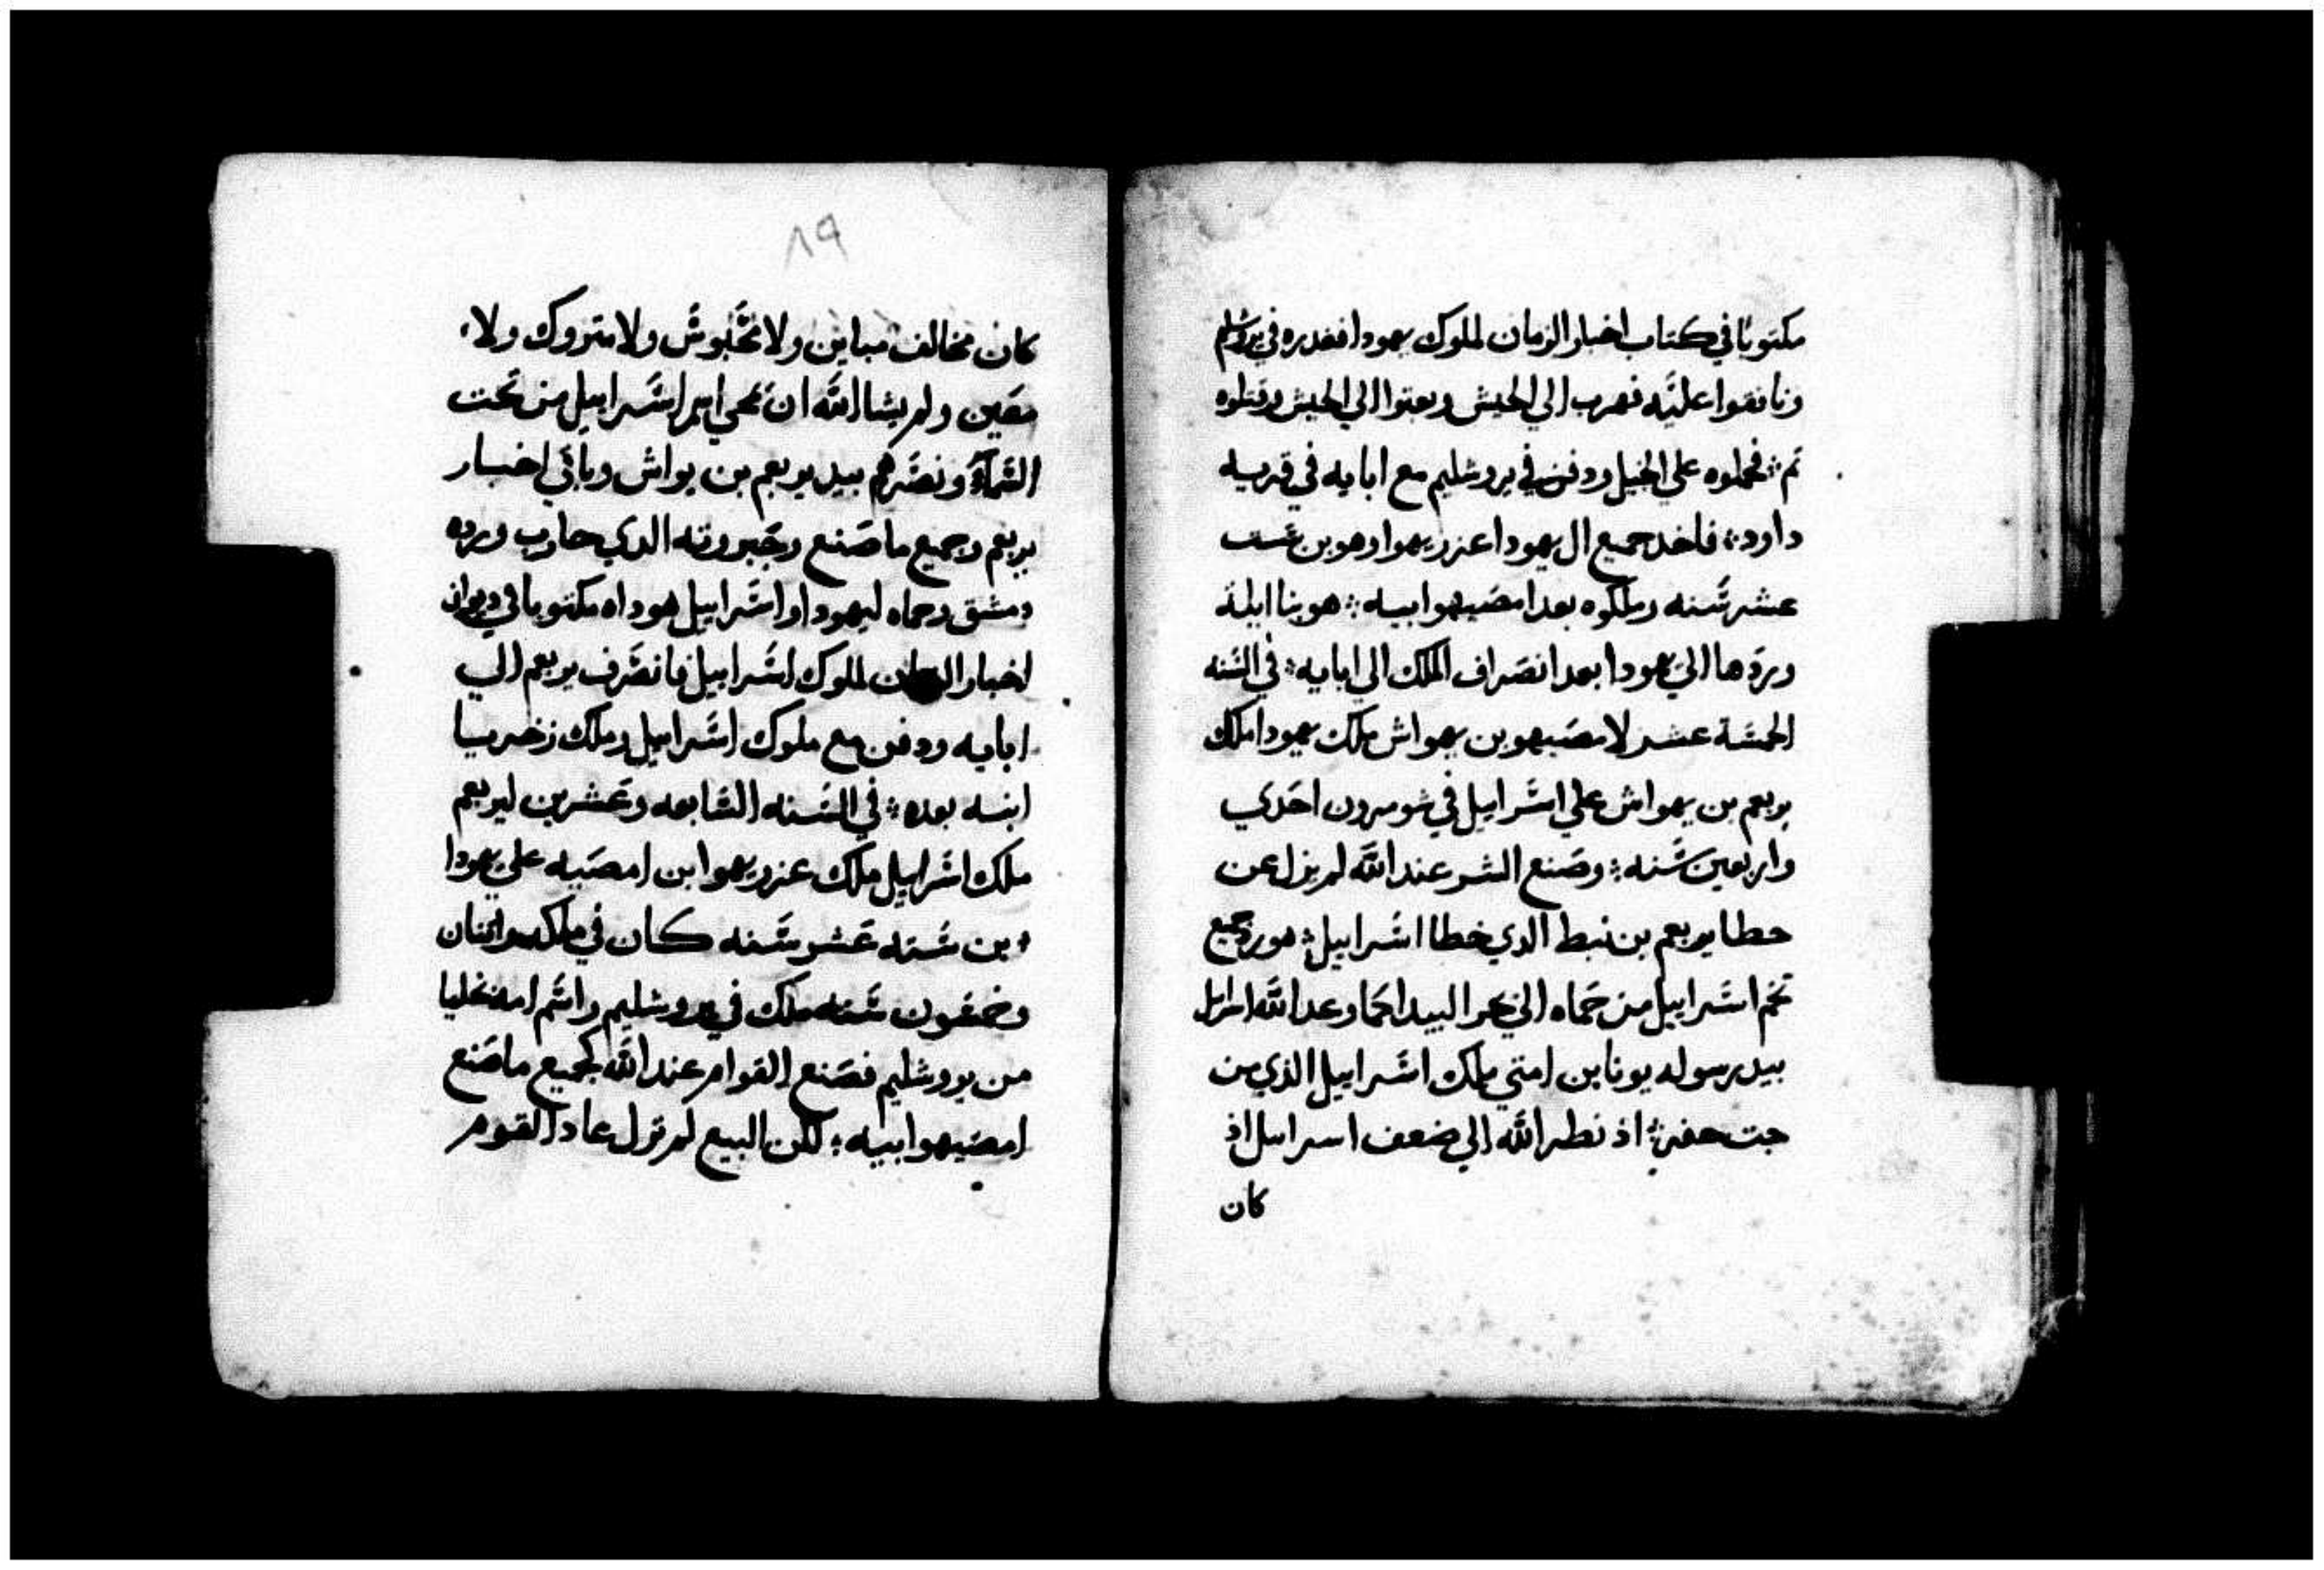 مكتوبًا في كتاب اخبار الزمان لملوك يهودا فغدره في يروشلم
ونافقوا عليه فهرب الي الخيش وبعتوا الي الخيش وقتلوه
تم فحملوه علي الخيل ودفن في يروشليم مع ابايه في قريه
داود فاخد جميع ال يهودا عزريهوا وهو بن ست
عشر سنه وملكوه بعد امصيهوا ابيه هو بنا ايلة
وردها الي يهودا بعد انصراف الملك الي ابايه في السنه
الخمسة عشر لامصيهو بن يهواش ملك يهودا ملك
يربعم بن يهواش علي اسرابيل في شومرون احدي
واربعين سنه وصنع الشر عند الله لم يزل عن
خطا يربعم بن نبط الدي خطا اسرابيل هو رد جميع
تخم اسرابيل من حماه الي بحر البيدا كما وعد الله اسرايل
بيد رسوله يونا بن امتي ملك اسرابيل الذي من
جت حفر اذ نظر الله الي ضعف اسراىل اذ
كان
٨٩
كان مخالف مباين ولا محبوش ولا متروك ولا
معين ولم يشا الله ان يمحي اسم اسرابيل من تحت
السماء ونصرهم بيد يربعم بن يواش وباقي اخبار
يربعم وجميع ما صنع وجبروته الدي حارب ورده
دمشق وحماه ليهودا واسرابيل هوداه مكتوبا في ديوان
اخبار الزمان لملوك اسرابيل فانصرف يربعم الي
ابايه ودفن مع ملوك اسرابيل وملك زخريا
ابنه بعده في السنه السابعه وعشرين ليربعم
ملك اسرابيل ملك عزريهوا بن امصيه علي يهودا
بن سته عشر سنه كان في ملكه واتنان
وخمسون سنه ملك في يروشليم واسم امه يخليا
من يروشليم فصنع القوام عند الله كجميع ما صنع
امصيهوا ابيه لكن البيع لم تزل عاد القوم